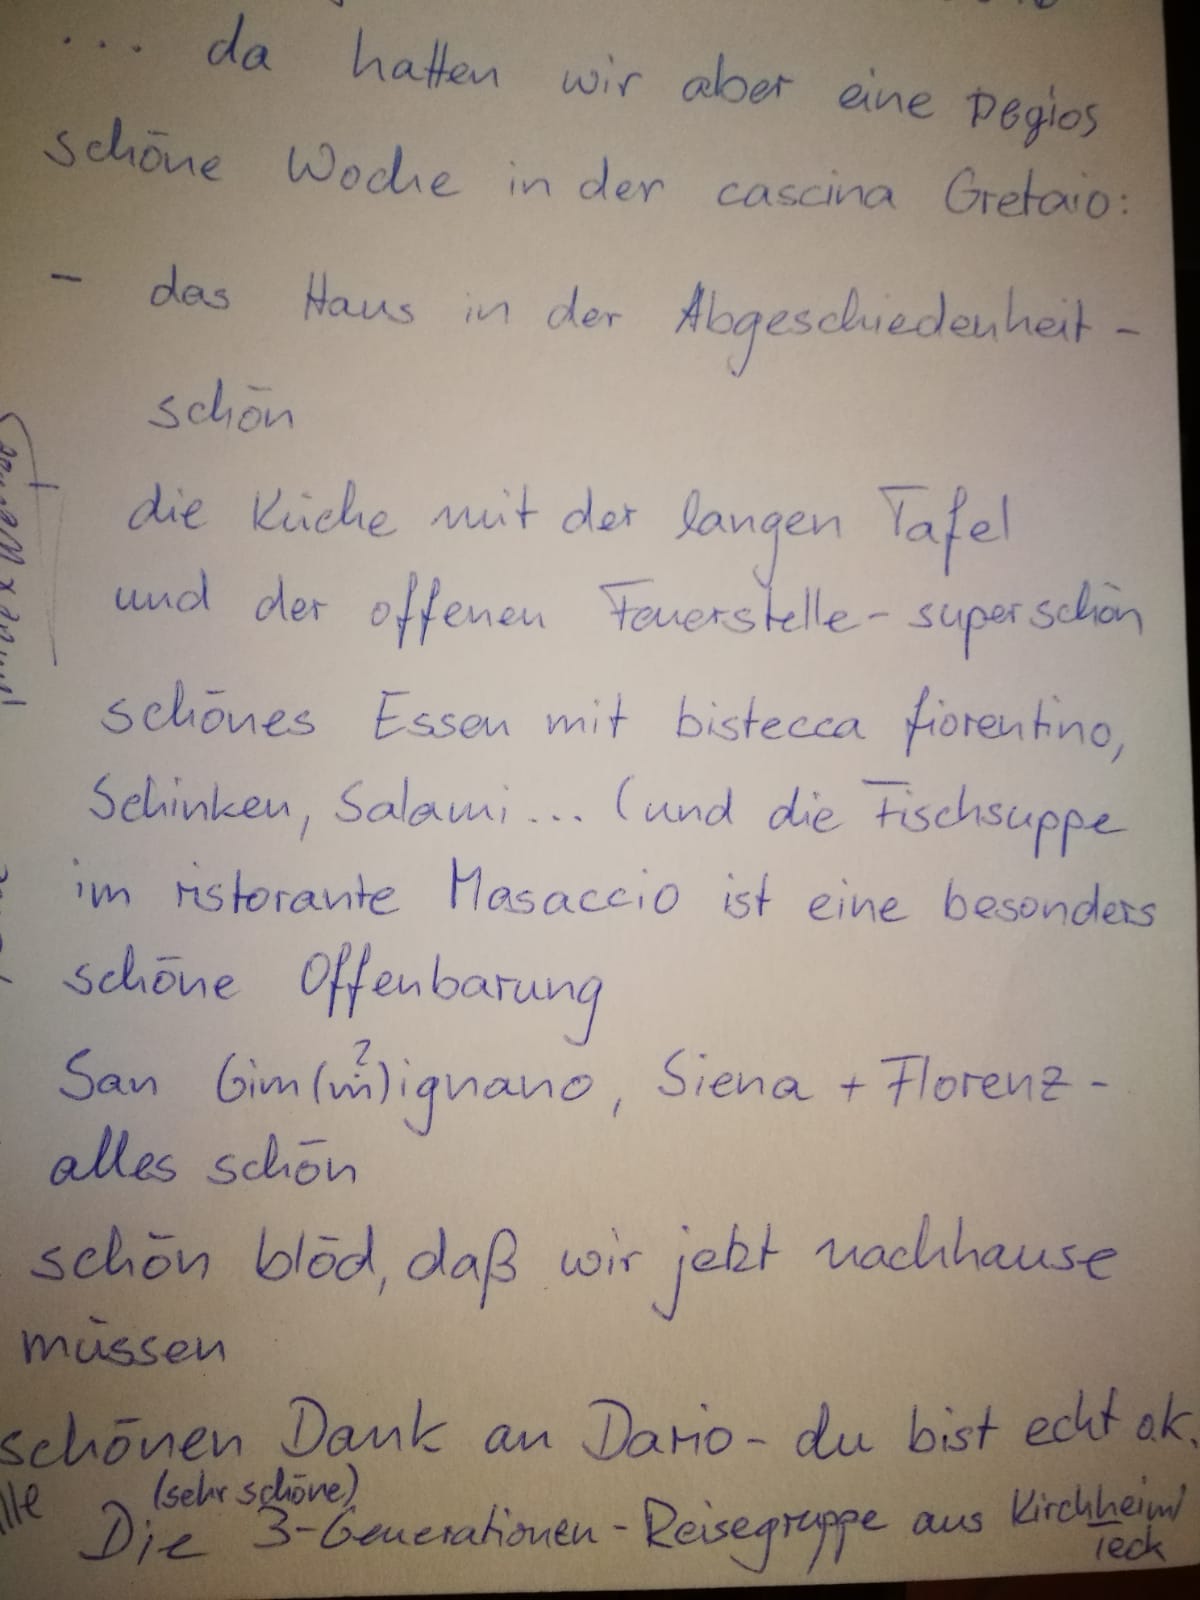 ... da hatten wir aber eine
schöne Woche in der cascina Gretaio:
- das Haus in der Abgeschiedenheit -
schön
die Küche mit der langen Tafel
und der offenen Feuerstelle - superschön
schönes Essen mit bistecca fiorentino,
Schinken, Salami... (und die Fischsuppe
im ristorante Masaccio ist eine besonders
schöne Offenbarung
?
San Gim(m)ignano, Siena + Florenz -
alles schön
schön blöd, daß wir jetzt nachhause
müssen
schönen Dank an Dario - du bist echt o.k.
(sehr schöne)
Die 3-Generationen-Reisegruppe aus Kirchheim/
Teck